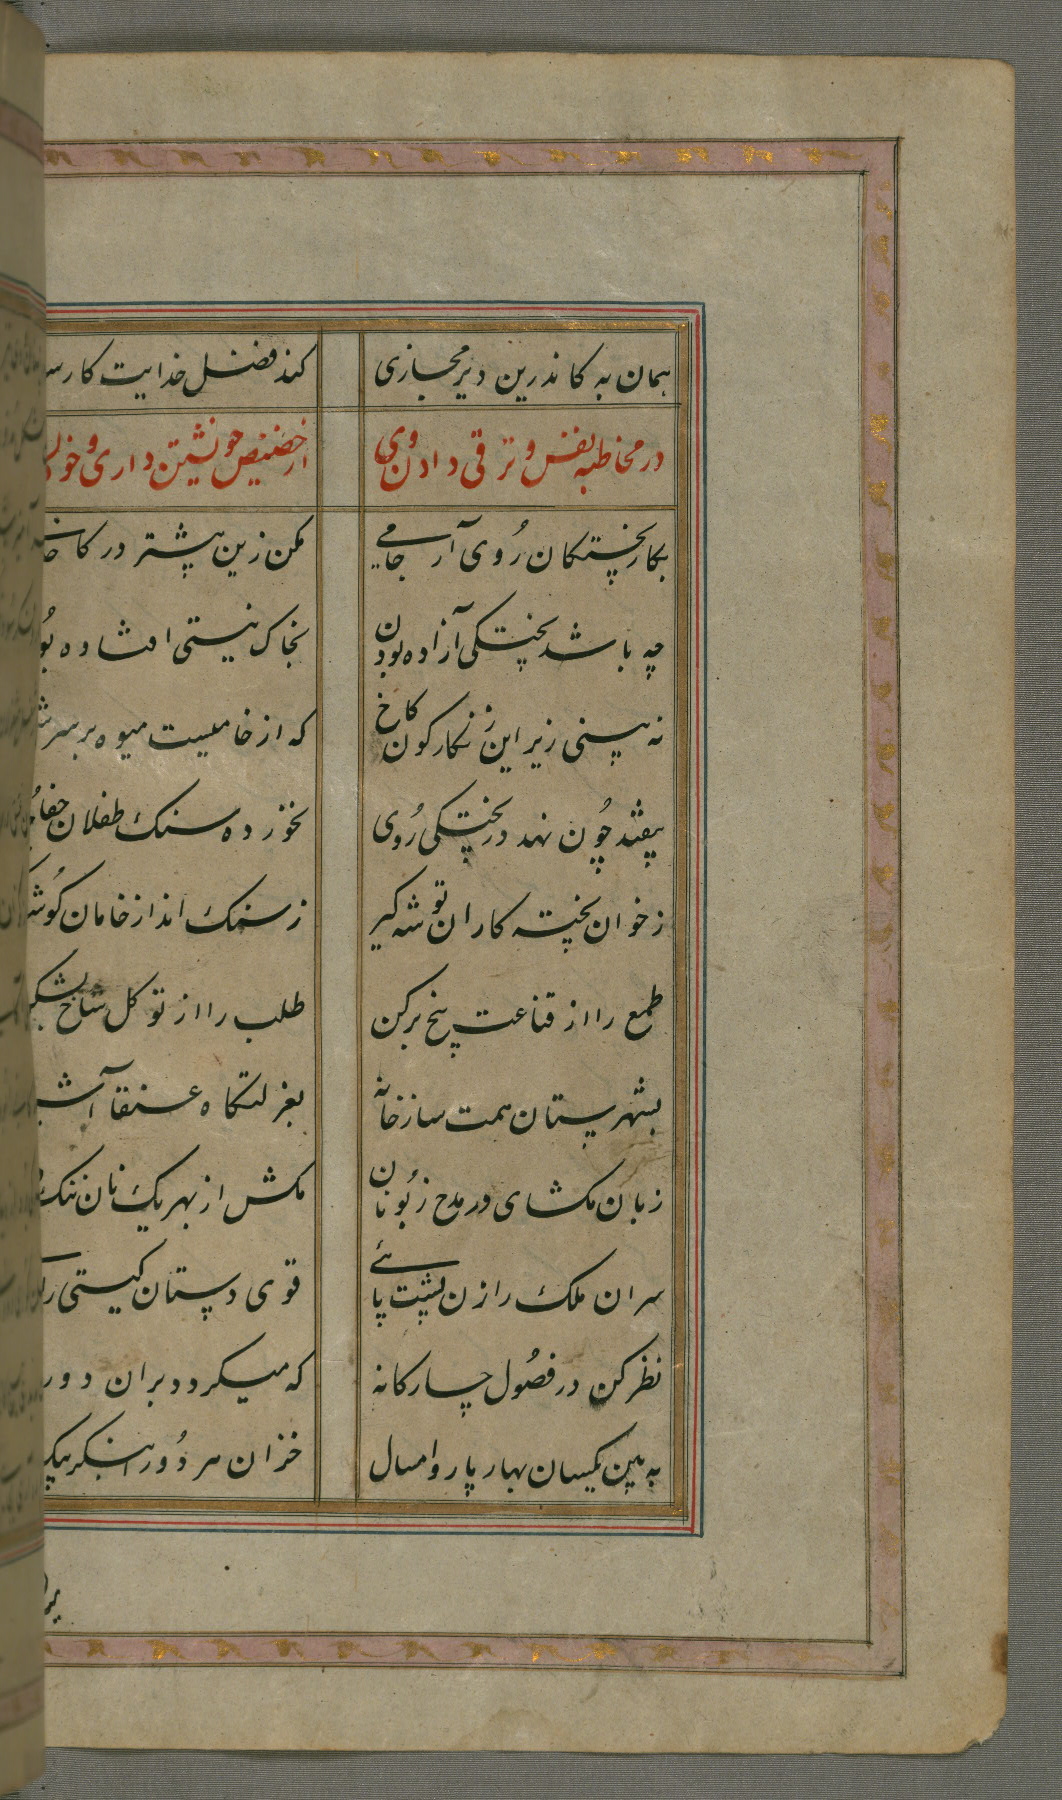 همان به کاندرین دیر مجازی کند فضل خدایت کارسا
در مخاطبه نفس و ترقی دادن وی از حضیض خویشتن داری و خود
بکار پختگان روی آر جامی مکن زین پیشتر در کار خا
چه باشد پختگی آزاده بودن بخاک نیستی افتاده بو
نه بینی زیر این زنگارگون کاخ که از خامیست میوه بر سر شا
بیفتد چون نهد در پختگی روی نخورده سنک طفلان جفا
ز خوان پخته کاران توشه گیر ز سنک انداز خامان گوش
طمع را از قناعت بیخ برکن طلب را از توکل شاخ بشک
بشهرستان همت ساز خانه بعزلتگاه عنقا آش
زبان مکشای در مدح زبونان مکش از بهر یک نان ننک
سران ملک را زن پشت پائے قوی دستان گیتی را
نظر کن در فصول چارگانه که میگردد بران دور
به بین یکسان بهار پار و امسال خزان هر دو را بنگر بیک